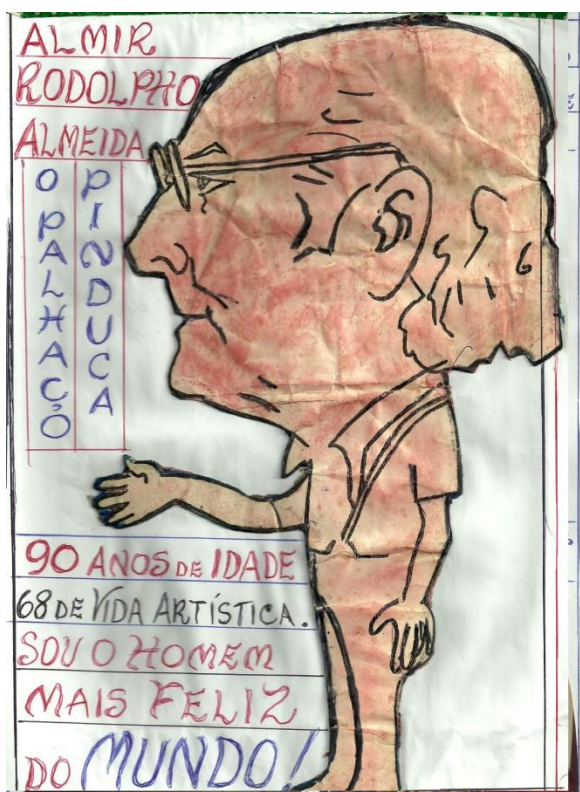 ALMIR
RODOLPHO
ALMEIDA
O PALHAÇO
PINDUCA
90 ANOS DE IDADE
68 DE VIDA ARTÍSTICA.
SOU O HOMEM
MAIS FELIZ
DO MUNDO!